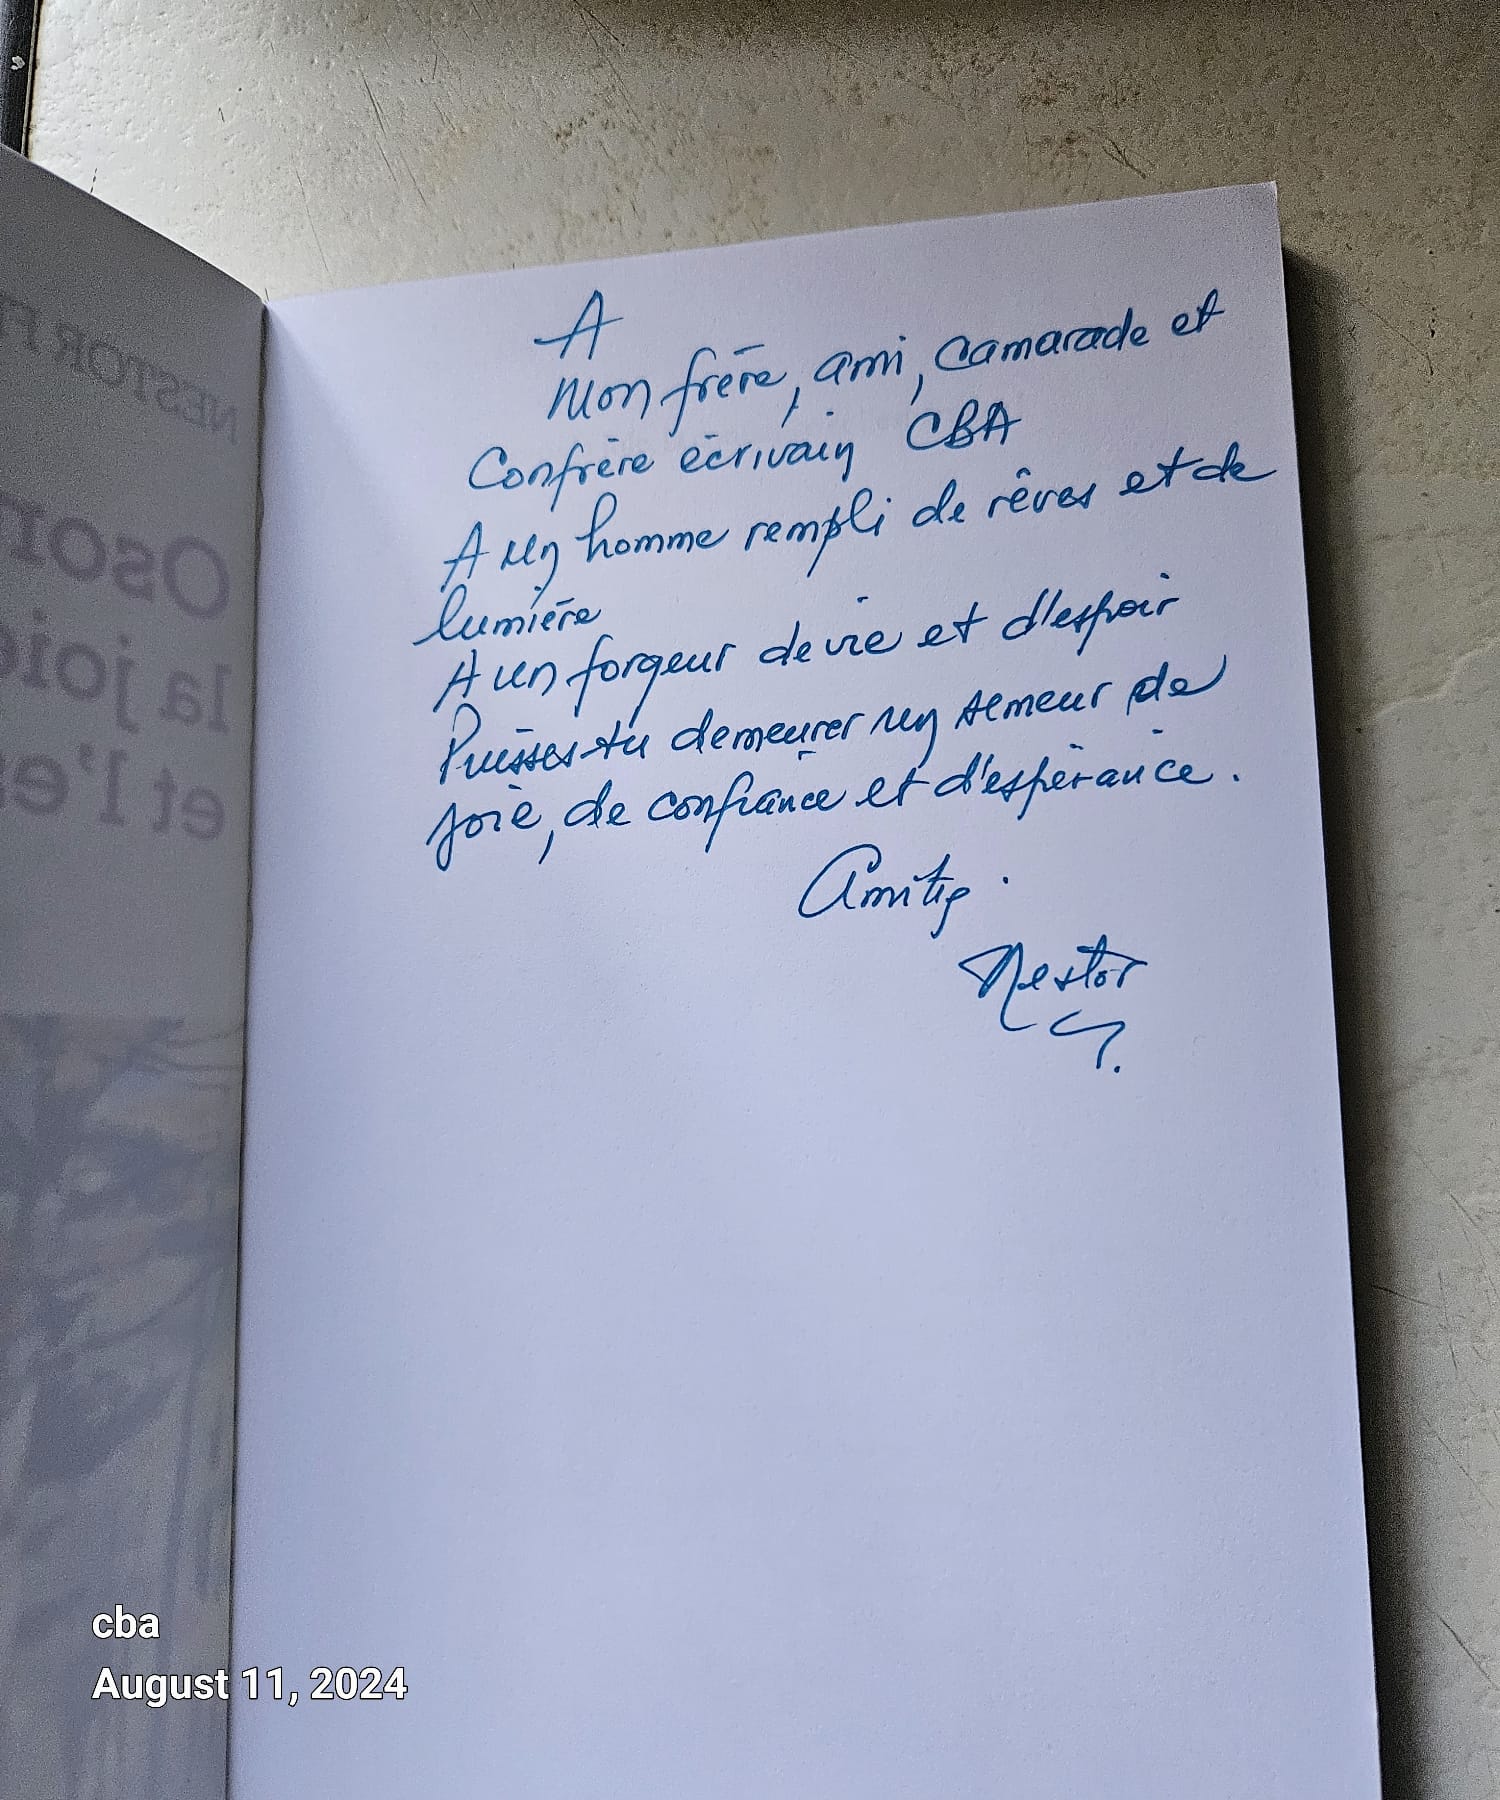 NESTOR
Oson
la joie
et l'es
A
Mon frère, ami, camarade et
Confrère écrivain CBA
A un homme rempli de rêves et de
lumière
A un forgeur de vie et d'espoir
Puisses-tu demeurer un semeur de
joie, de confiance et d'espérance.
Amitié.
Nestor
cba
August 11, 2024